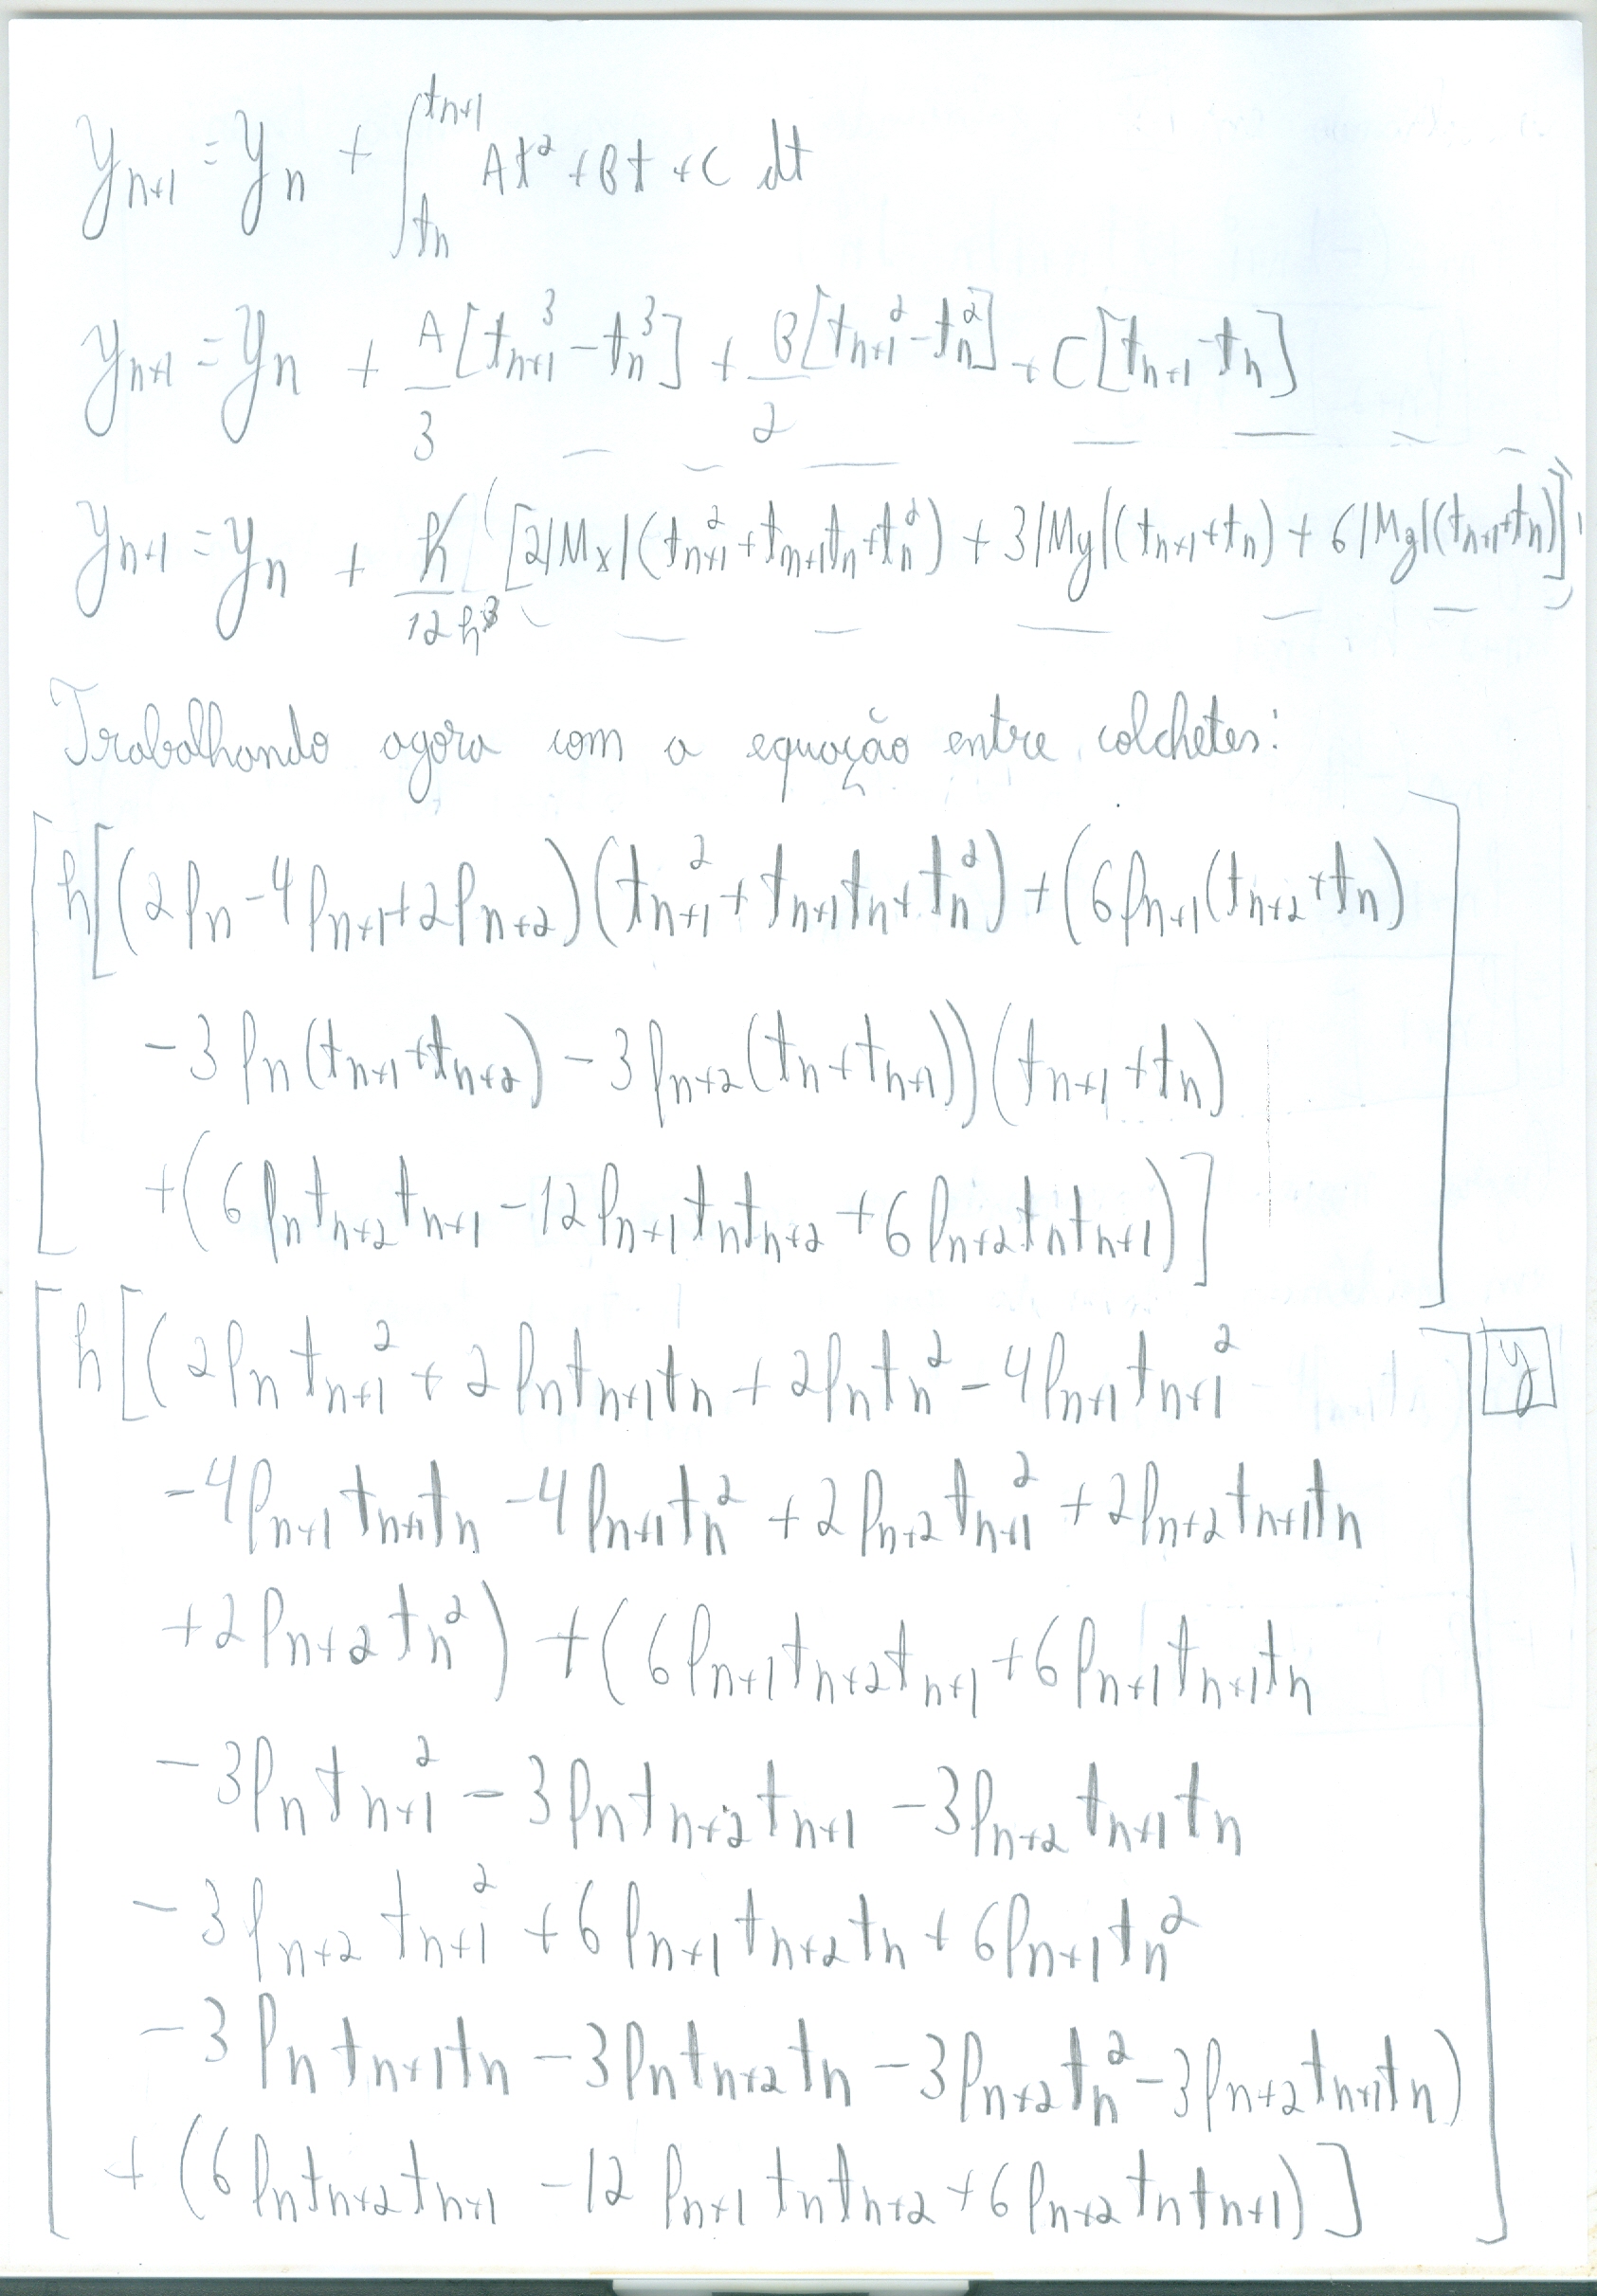 y_{n+1} = y_n + ∫_{t_n}^{t_{n+1}} At² + Bt + C dt
y_{n+1} = y_n + A/3 [t_{n+1}³ - t_n³] + B/2 [t_{n+1}² - t_n²] + C[t_{n+1} - t_n]
y_{n+1} = y_n + h/12h³ ([2|Mx|(t_{n+1}² + t_{n+1}t_n + t_n²) + 3|My|(t_{n+1} + t_n) + 6|Mz|(t_{n+1} + t_n)])
Trabalhando agora com a equação entre colchetes:
[h[(2f_n - 4f_{n+1} + 2f_{n+2})(t_{n+1}² + t_{n+1}t_n + t_n²) + (6f_{n+1}(t_{n+2} + t_n)
-3f_n(t_{n+1} + t_{n+2}) - 3f_{n+2}(t_n + t_{n+1}))(t_{n+1} + t_n)
+(6f_n t_{n+2}t_{n+1} - 12f_{n+1}t_n t_{n+2} + 6f_{n+2}t_n t_{n+1})]]
[h[(2f_n t_{n+1}² + 2f_n t_{n+1}t_n + 2f_n t_n² - 4f_{n+1}t_{n+1}²
-4f_{n+1}t_{n+1}t_n - 4f_{n+1}t_n² + 2f_{n+2}t_{n+1}² + 2f_{n+2}t_{n+1}t_n
+2f_{n+2}t_n²) + (6f_{n+1}t_{n+2}t_{n+1} + 6f_{n+1}t_{n+1}t_n
-3f_n t_{n+1}² - 3f_n t_{n+2}t_{n+1} - 3f_{n+2}t_{n+1}t_n
-3f_{n+2}t_{n+1}² + 6f_{n+1}t_{n+2}t_n + 6f_{n+1}t_n²
-3f_n t_{n+1}t_n - 3f_n t_{n+2}t_n - 3f_{n+2}t_n² - 3f_{n+2}t_{n+1}t_n)
+ (6f_n t_{n+2}t_{n+1} - 12f_{n+1}t_n t_{n+2} + 6f_{n+2}t_n t_{n+1})]]